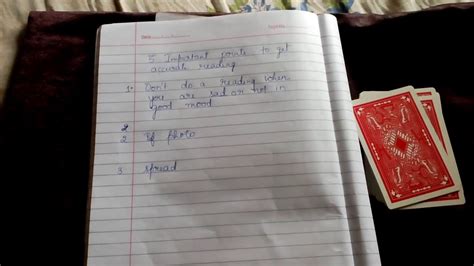 Date
5 Important points to get
accurate reading
1. Don't do a reading when
you are sad or not in
good mood
2
2 If photo
3. spread